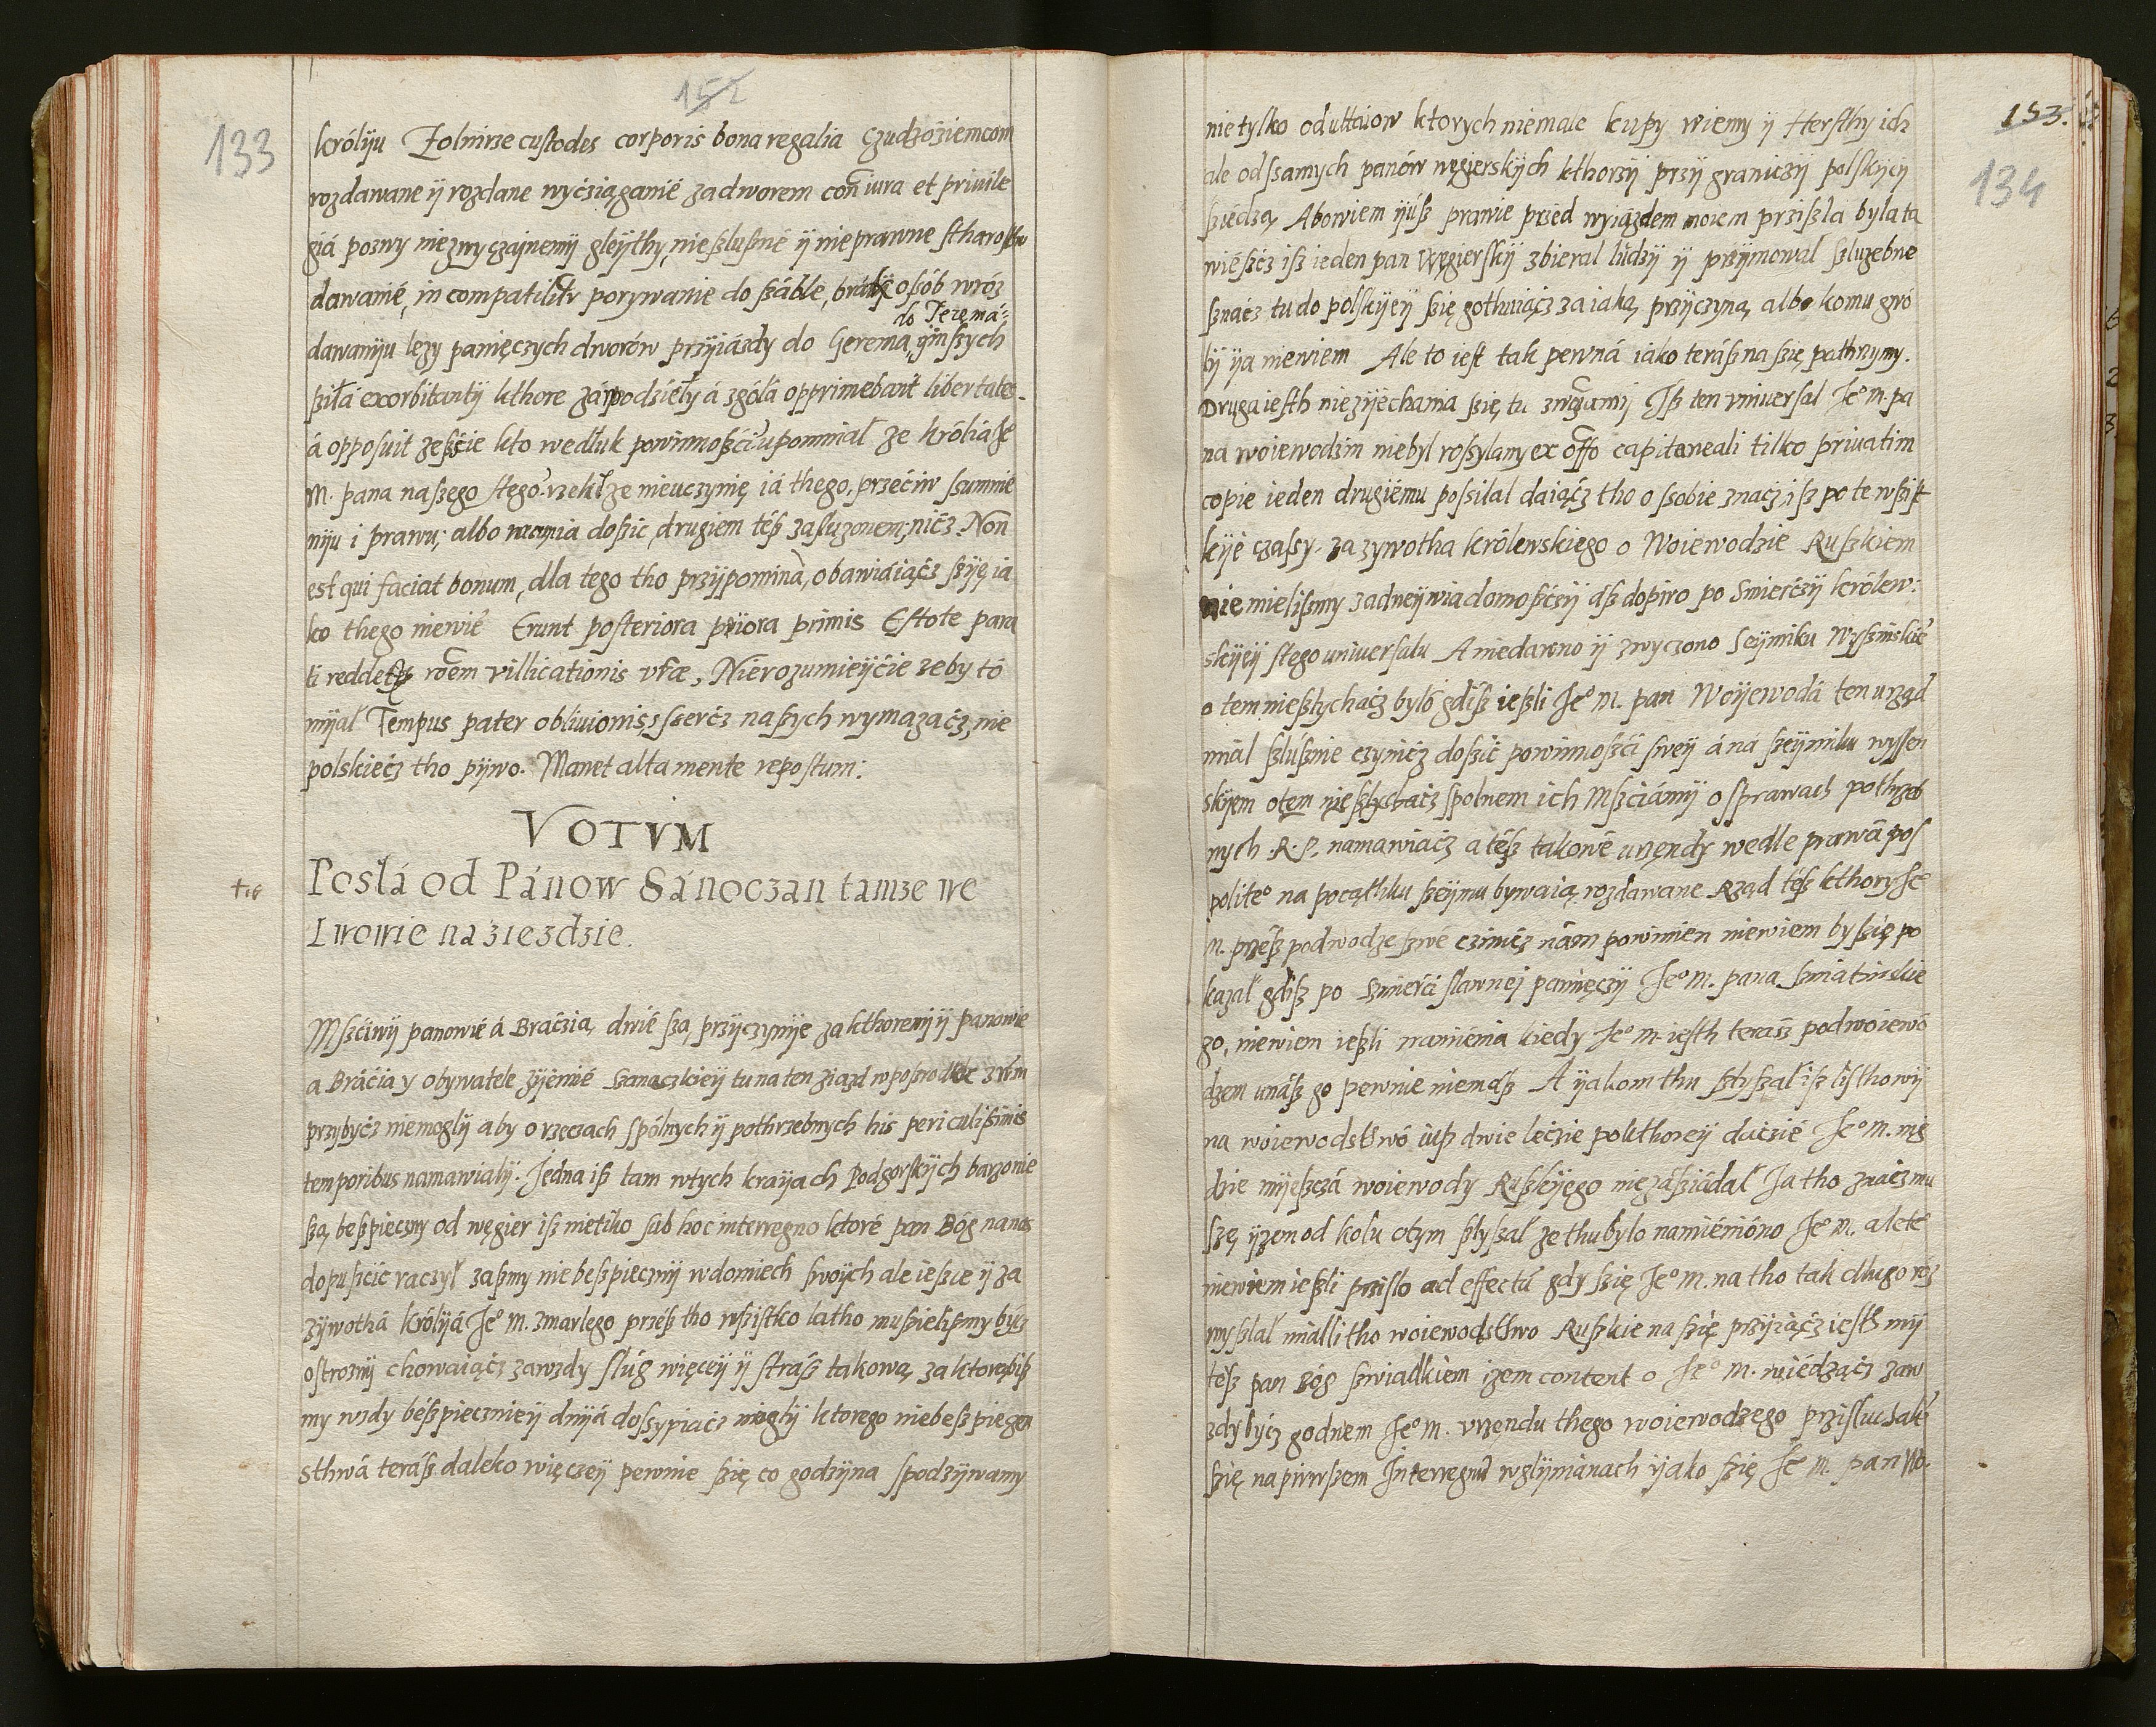 152
133
królyu Żolnirze custodes corporis bona regalia Czudzoziemcom
rozdawane ÿ rozdane wyćziąganié za dworem con iura et priuile
giá pozwy niezwyczajnemÿ gleÿthy, nieszlusné ÿ nieprawne stharostw
dawanié, in compatilitr porywanie do száble, osób wróz
do Jeremá:
dawanÿu lezy panięczych dworów przÿiázdy do Gerema, ÿinszych
sziłá exorbitantÿ kthore zárpodziéły á zgólá opprimebant libertates
á opposuit zeßćie kto wedłuk powinnoßćiupominał ze królia Je
M. pana naszego stego rzekł ze nieuczynię iá thego, przećiw ssumnie
nÿu i prawu; albo dosic drugiem téß zasluzonem; nićz. Non
est qui faciat bonum, dla tego tho przÿpominà, obawiáiąćz szÿę ia
ko thego niewié Erunt posteriora priora primis Estote para
ti reddets roem villicationis vrae, Nierozumieÿćie zeby tó
mÿał Tempus pater obliuionis, z sserćz naszych wymazaćz, nie
polskiećz tho pÿwo. Manet alta mente repostum:
VOTVM
Poslá od Pánow Sánoczan tamze we
Lwowie na zieździe.
Mszćiwÿ panowié á Braćzia, dwié sza, przÿczynÿe za kthoremÿ ÿ panowie
a Bráćia y obywatele zÿémié Szanoczkieÿ tu na ten ziazd wposrodkoc zwm
przybyćz niemoglÿ aby o rzęczach spólnych ÿ pothrzebnych his periculißimis
temporibus namawialÿ. Jedna iß tam wtych kraÿach Podgorskÿch barzo nie
sza, beßpieczny od węgier iß nietilko sub hoc interregno ktoré pan Bóg na nas
dopuszćic raczył zaßmy niebeßpiecznÿ wdomiech swoÿch ale ieszce ÿ za
zÿwothá królÿá Jeº M. zmarlego prześ tho wszistko latho mußielißmy býcz
ostroznÿ chowaiąćz zawzdy slúg więceÿ ÿ stráß takową, za ktorąbiß
my wzdy béßpiecznieÿ dnÿá dossypiaćz moglÿ ktorego niebeßpiecen
sthwá teráß daleko więczeÿ pewnie szię co godzÿna spodzÿwamy
153.
134
nie tylko od uttáiow ktorych niemale kupy wiemy ÿ Hersthy ich
ale od ssamych panów węgierskÿch kthorzÿ przÿ graniczÿ polskÿeÿ
sziédzą, Abowiem ÿúß prawie przed wyiázdem moiem przißla byla ta
wiéßćz iß ieden pan Węgierskÿ zbieral lúdzÿ ÿ przÿmowal szluzebne
sznaćz tu do polskÿeÿ się gothuiąćz za iaką przÿczyną, albo komu gwó
lÿ ÿa niewiem Ale to iest tak pewná iako teráß na szię pathrzymy.
Druga iesth niezÿechania szię tu zwamj Iß ten vniuersal Jeº m. pa
na woiewodzin niebyl roßylany ex offo capitaneali tilko priuatim
copie ieden drugiému possilal daiąćz tho o ssobie znaćz, iß po te wßist
kÿe czassy. za zywotha królewskiego o Woiewodzie Ruszkiem
nie mielißmy zadneÿ wiadomośćzÿ áß dopiro po Smierćzÿ królew:
skÿeÿ stego uniuersalu A niedawno ÿ zwyczono Seÿmiku Wyßinskie
o tem nießlychaćz byló gdiß ießli Jeº m. pan Woÿewodá ten urząd
miał szlußnie czynićz dosić powinnośći sweÿ á ná szeÿmiku wyssen
skÿem otem nießlychaćz spolnem ich Mszćiámÿ o sprawach pothrzeb
nych R. P. namawiaćz a téß takowé urzędy wedle prawá pos
politeº na pocąthku szeÿmu bywaią, rozdawane Rząd téß kthory Je
M. prześ podwodze szwé czinićz nám powinien niewiem by szię po
kazał gdiß po Szmierći slawnej pamięczÿ Jeº m. pana Szmiatinskie
go, niewiem ießli namiénia kiedy Jeº m. iesth teraß podwoiewó
dzem unáß go pewnie niemáß A ÿakom thu sz­lyßał iß listhowÿ
na woiewodstwó iuß dwie lećzie polithoreÿ daćzié Jeº m. nig
dzie mÿeszczá woiewody Ruskÿego niezászádał Ia tho znaćz mu
szę, ÿzem od kolu otym slyßał ze thu bylo namiénióno Jeº m. ale te
niewiem ießli prziszlo ad effectú gdy szię Jeº m. na tho tak długo róz
myszlał miałli tho woiewodstwo Ruszkie na szię przÿiąćz iesth mÿ
téß pan Bóg szwiadkiem izem content o Jeº m. wiédząćz zaw
zdy býćz godnem Jeº m. vrzędu thego woiewodzego przisluchałé
szię na pirwszem Interregnú wglÿnianach ÿako szię Je m. pan Wo.